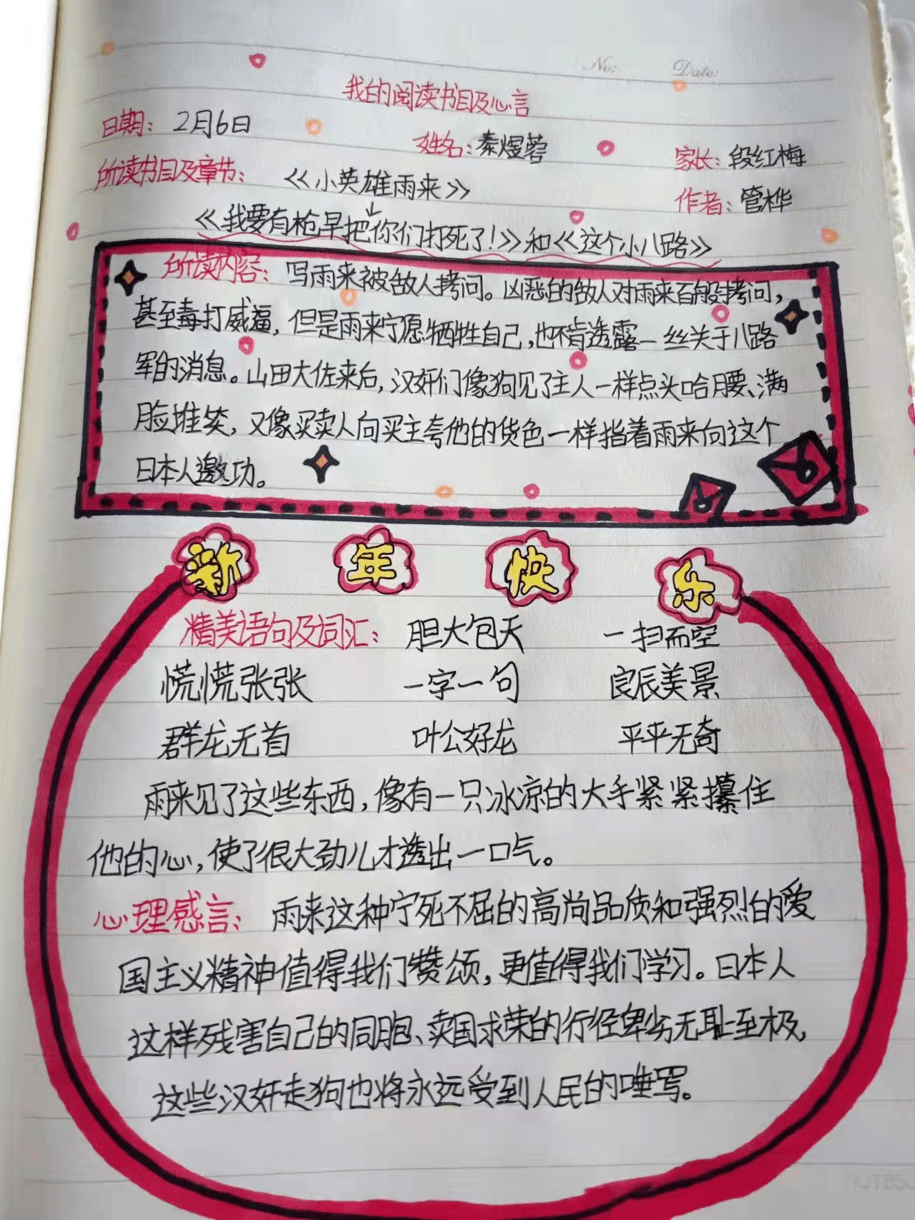 No: Date:
我的阅读书目及心言
日期：2月6日 姓名：秦煜蓉 家长：段红梅
所读书目及章节：《小英雄雨来》 作者：管桦
《我要有枪早把你们打死了！》和《这个小八路》
所读内容：写雨来被敌人拷问。凶恶的敌人对雨来百般拷问，
甚至毒打威逼，但是雨来宁愿牺牲自己，也不肯透露一丝关于八路
军的消息。山田大佐来后，汉奸们像狗见了主人一样点头哈腰、满
脸堆笑，又像买卖人向买主夸他的货色一样指着雨来向这个
日本人邀功。
新年快乐
精美语句及词汇：胆大包天 一扫而空
慌慌张张 一字一句 良辰美景
群龙无首 叶公好龙 平平无奇
雨来见了这些东西，像有一只冰凉的大手紧紧攥住
他的心，使了很大劲儿才透出一口气。
心理感言：雨来这种宁死不屈的高尚品质和强烈的爱
国主义精神值得我们赞颂，更值得我们学习。日本人
这样残害自己的同胞、卖国求荣的行径卑劣无耻至极，
这些汉奸走狗也将永远受到人民的唾骂。